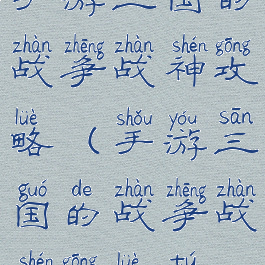 zhàn zhēng zhàn shén gōng
战争战神攻
lüè shǒu yóu sān
略（手游三
guó de zhàn zhēng zhàn
国的战争战
shén gōng lüè tú